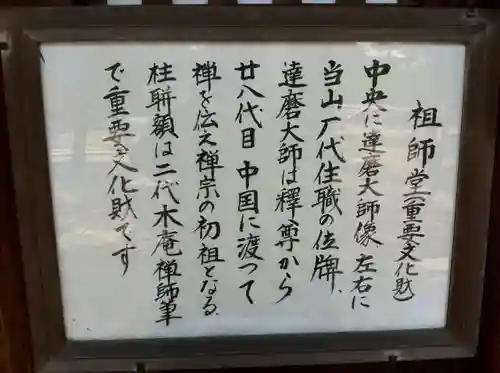 祖師堂(重要文化財
中央に達磨大師像 左右に
当山、歴代住職の位牌、
達磨大師は釋尊から
廿八代目 中国に渡つて
禅を伝え禅宗の初祖となる
柱聯額は二代木庵禅師筆
で重要文化財です